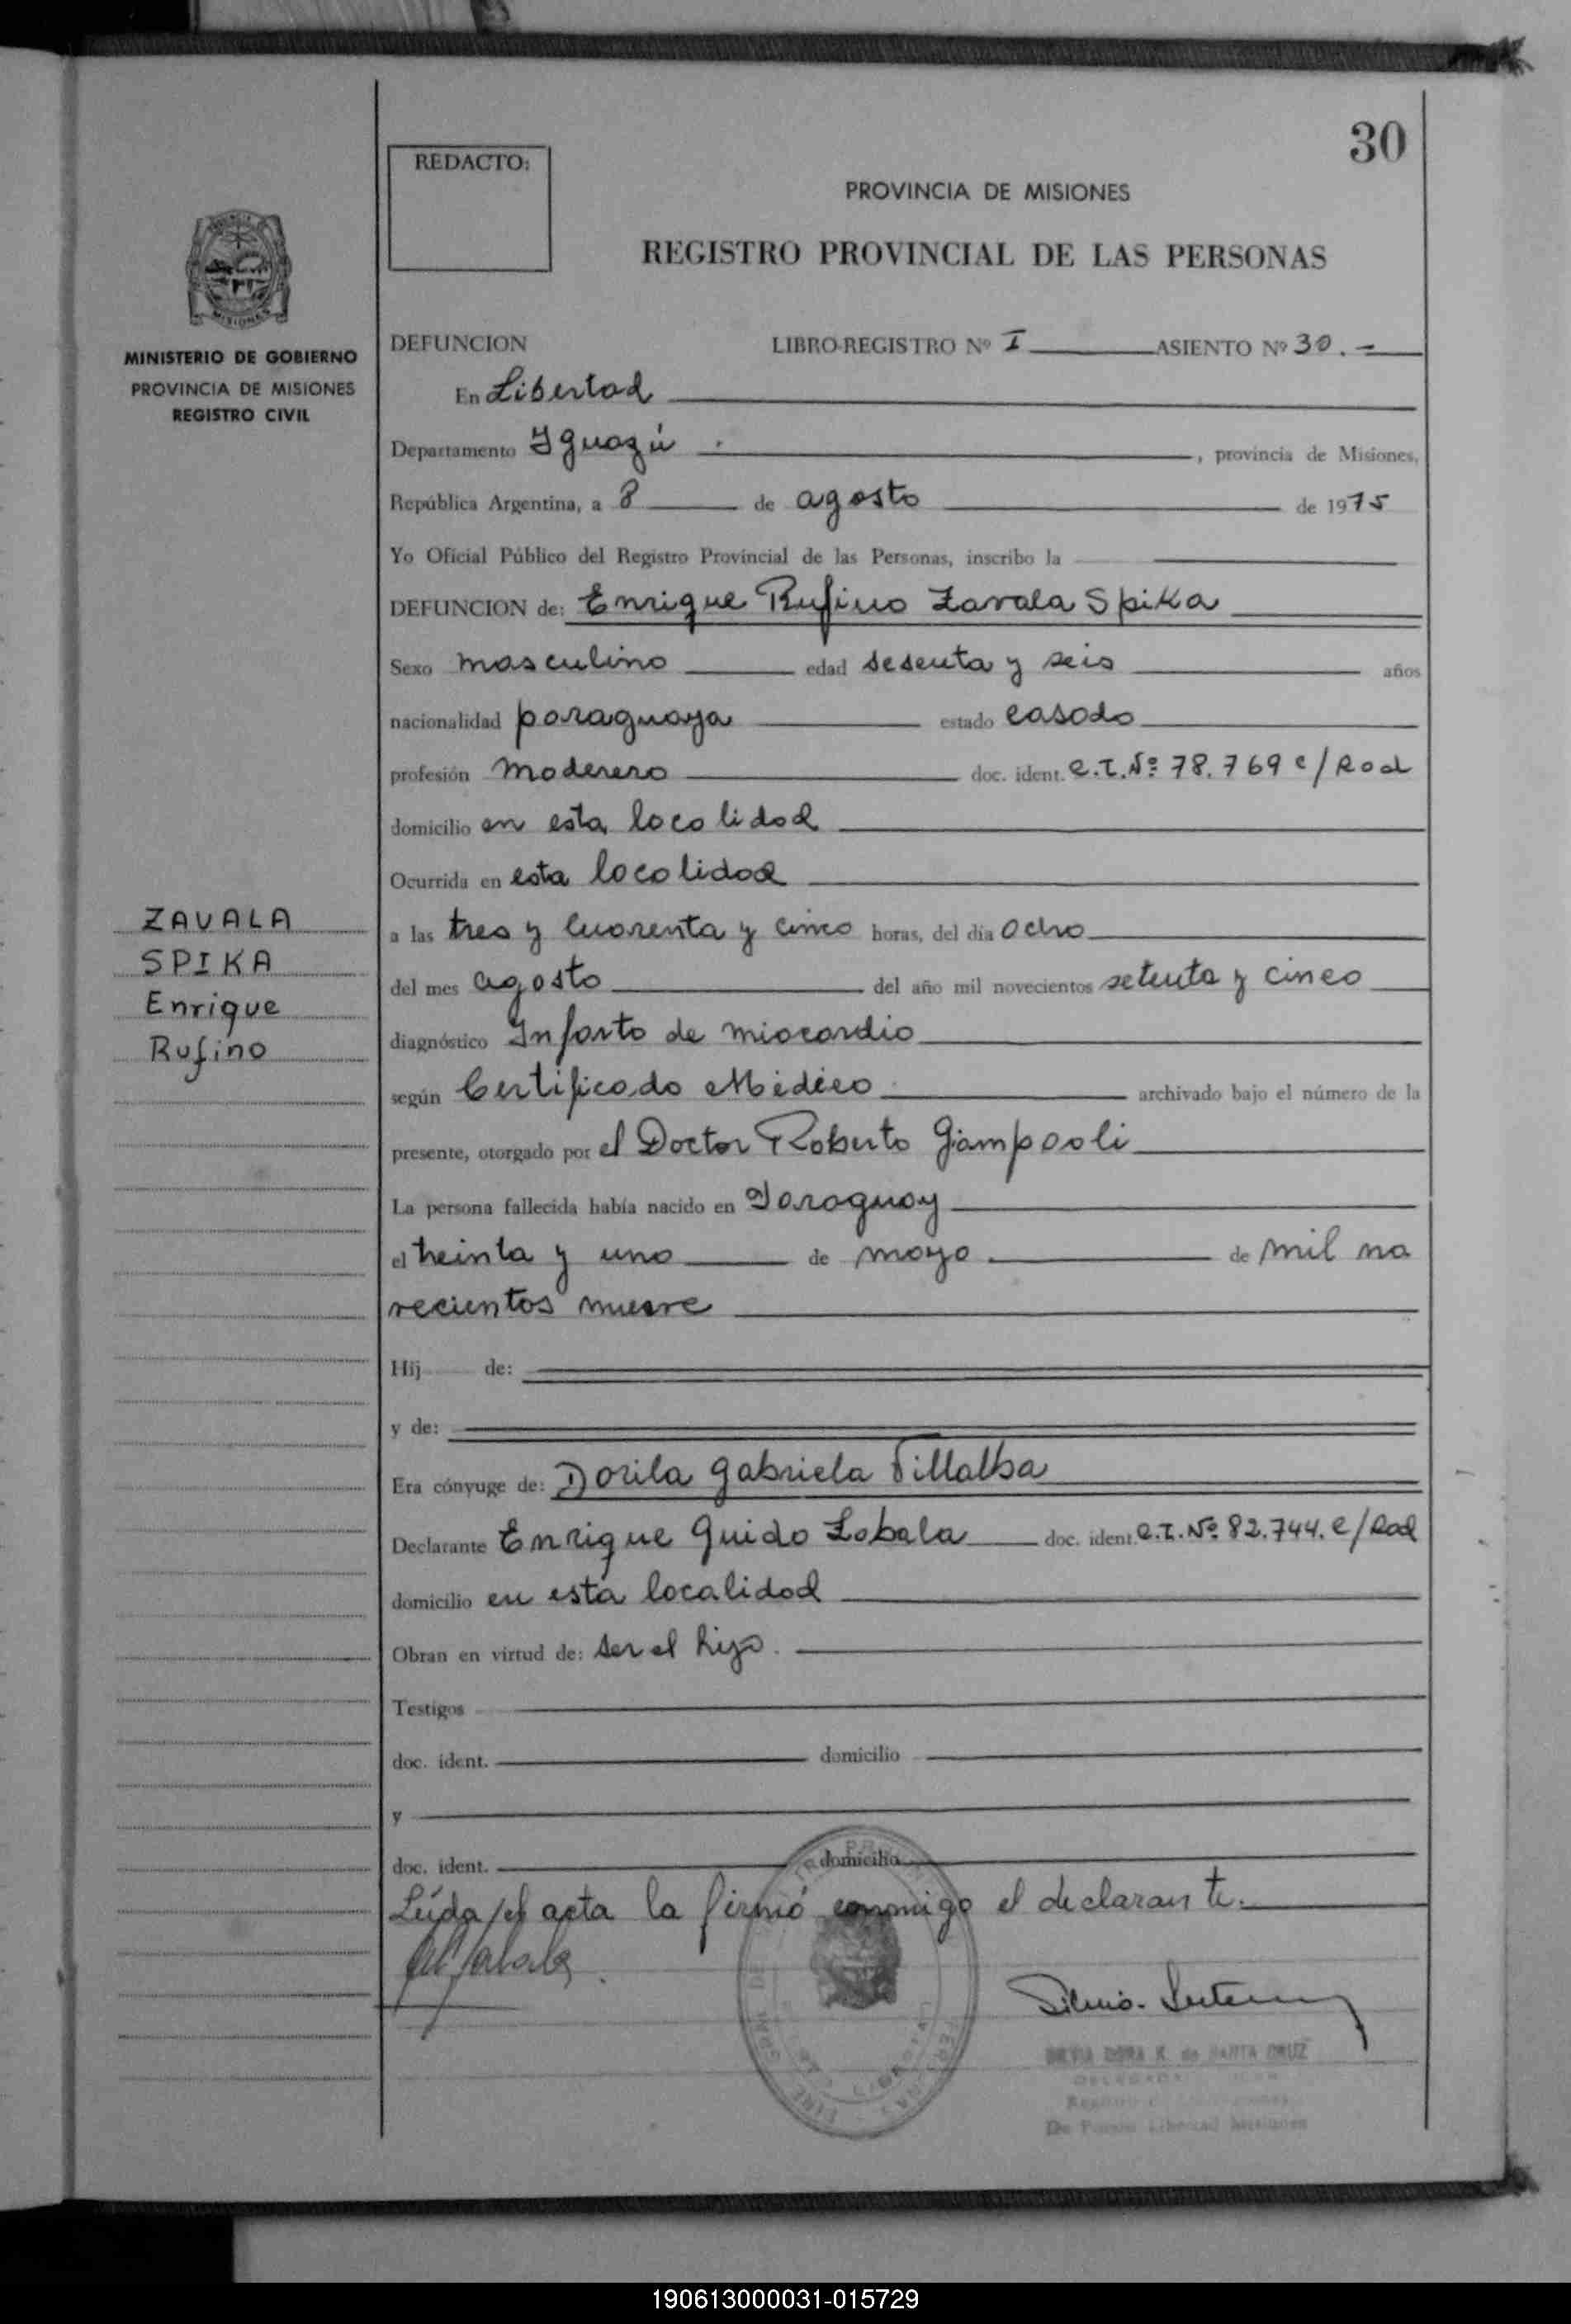 30
REDACTO:
PROVINCIA DE MISIONES
REGISTRO PROVINCIAL DE LAS PERSONAS
MISIONES
MINISTERIO DE GOBIERNO
PROVINCIA DE MISIONES
REGISTRO CIVIL
DEFUNCION LIBRO-REGISTRO Nº I ASIENTO Nº 30.-
En Libertad
Departamento Iguazú , provincia de Misiones,
República Argentina, a 8 de agosto de 1975
Yo Oficial Público del Registro Provincial de las Personas, inscribo la
DEFUNCION de: Enrique Rufino Zavala Spika
Sexo masculino edad sesenta y seis años
nacionalidad paraguaya estado casado
profesión maderero doc. ident. C.I. Nº 78.769 e/Rad
domicilio en esta localidad
Ocurrida en esta localidad
a las tres y cuarenta y cinco horas, del día ocho
del mes agosto del año mil novecientos setenta y cinco
diagnóstico Infarto de miocardio
según Certificado Médico archivado bajo el número de la
presente, otorgado por el Doctor Roberto Giampaoli
La persona fallecida había nacido en Paraguay
el treinta y uno de mayo de mil no
vecientos nueve
Hij de:
y de:
Era cónyuge de: Dorila Gabriela Villalba
Declarante Enrique Guido Zabala doc. ident. C.I. Nº 82.744. e/Rad
domicilio en esta localidad
Obran en virtud de: ser el hijo.
Testigos
doc. ident. domicilio
y
doc. ident. domicilio
Leída el acta la firmó conmigo el declarante.
ZAVALA
SPIKA
Enrique
Rufino
DORA K. de SANTA CRUZ
De Puerto Libertad Misiones
190613000031-015729